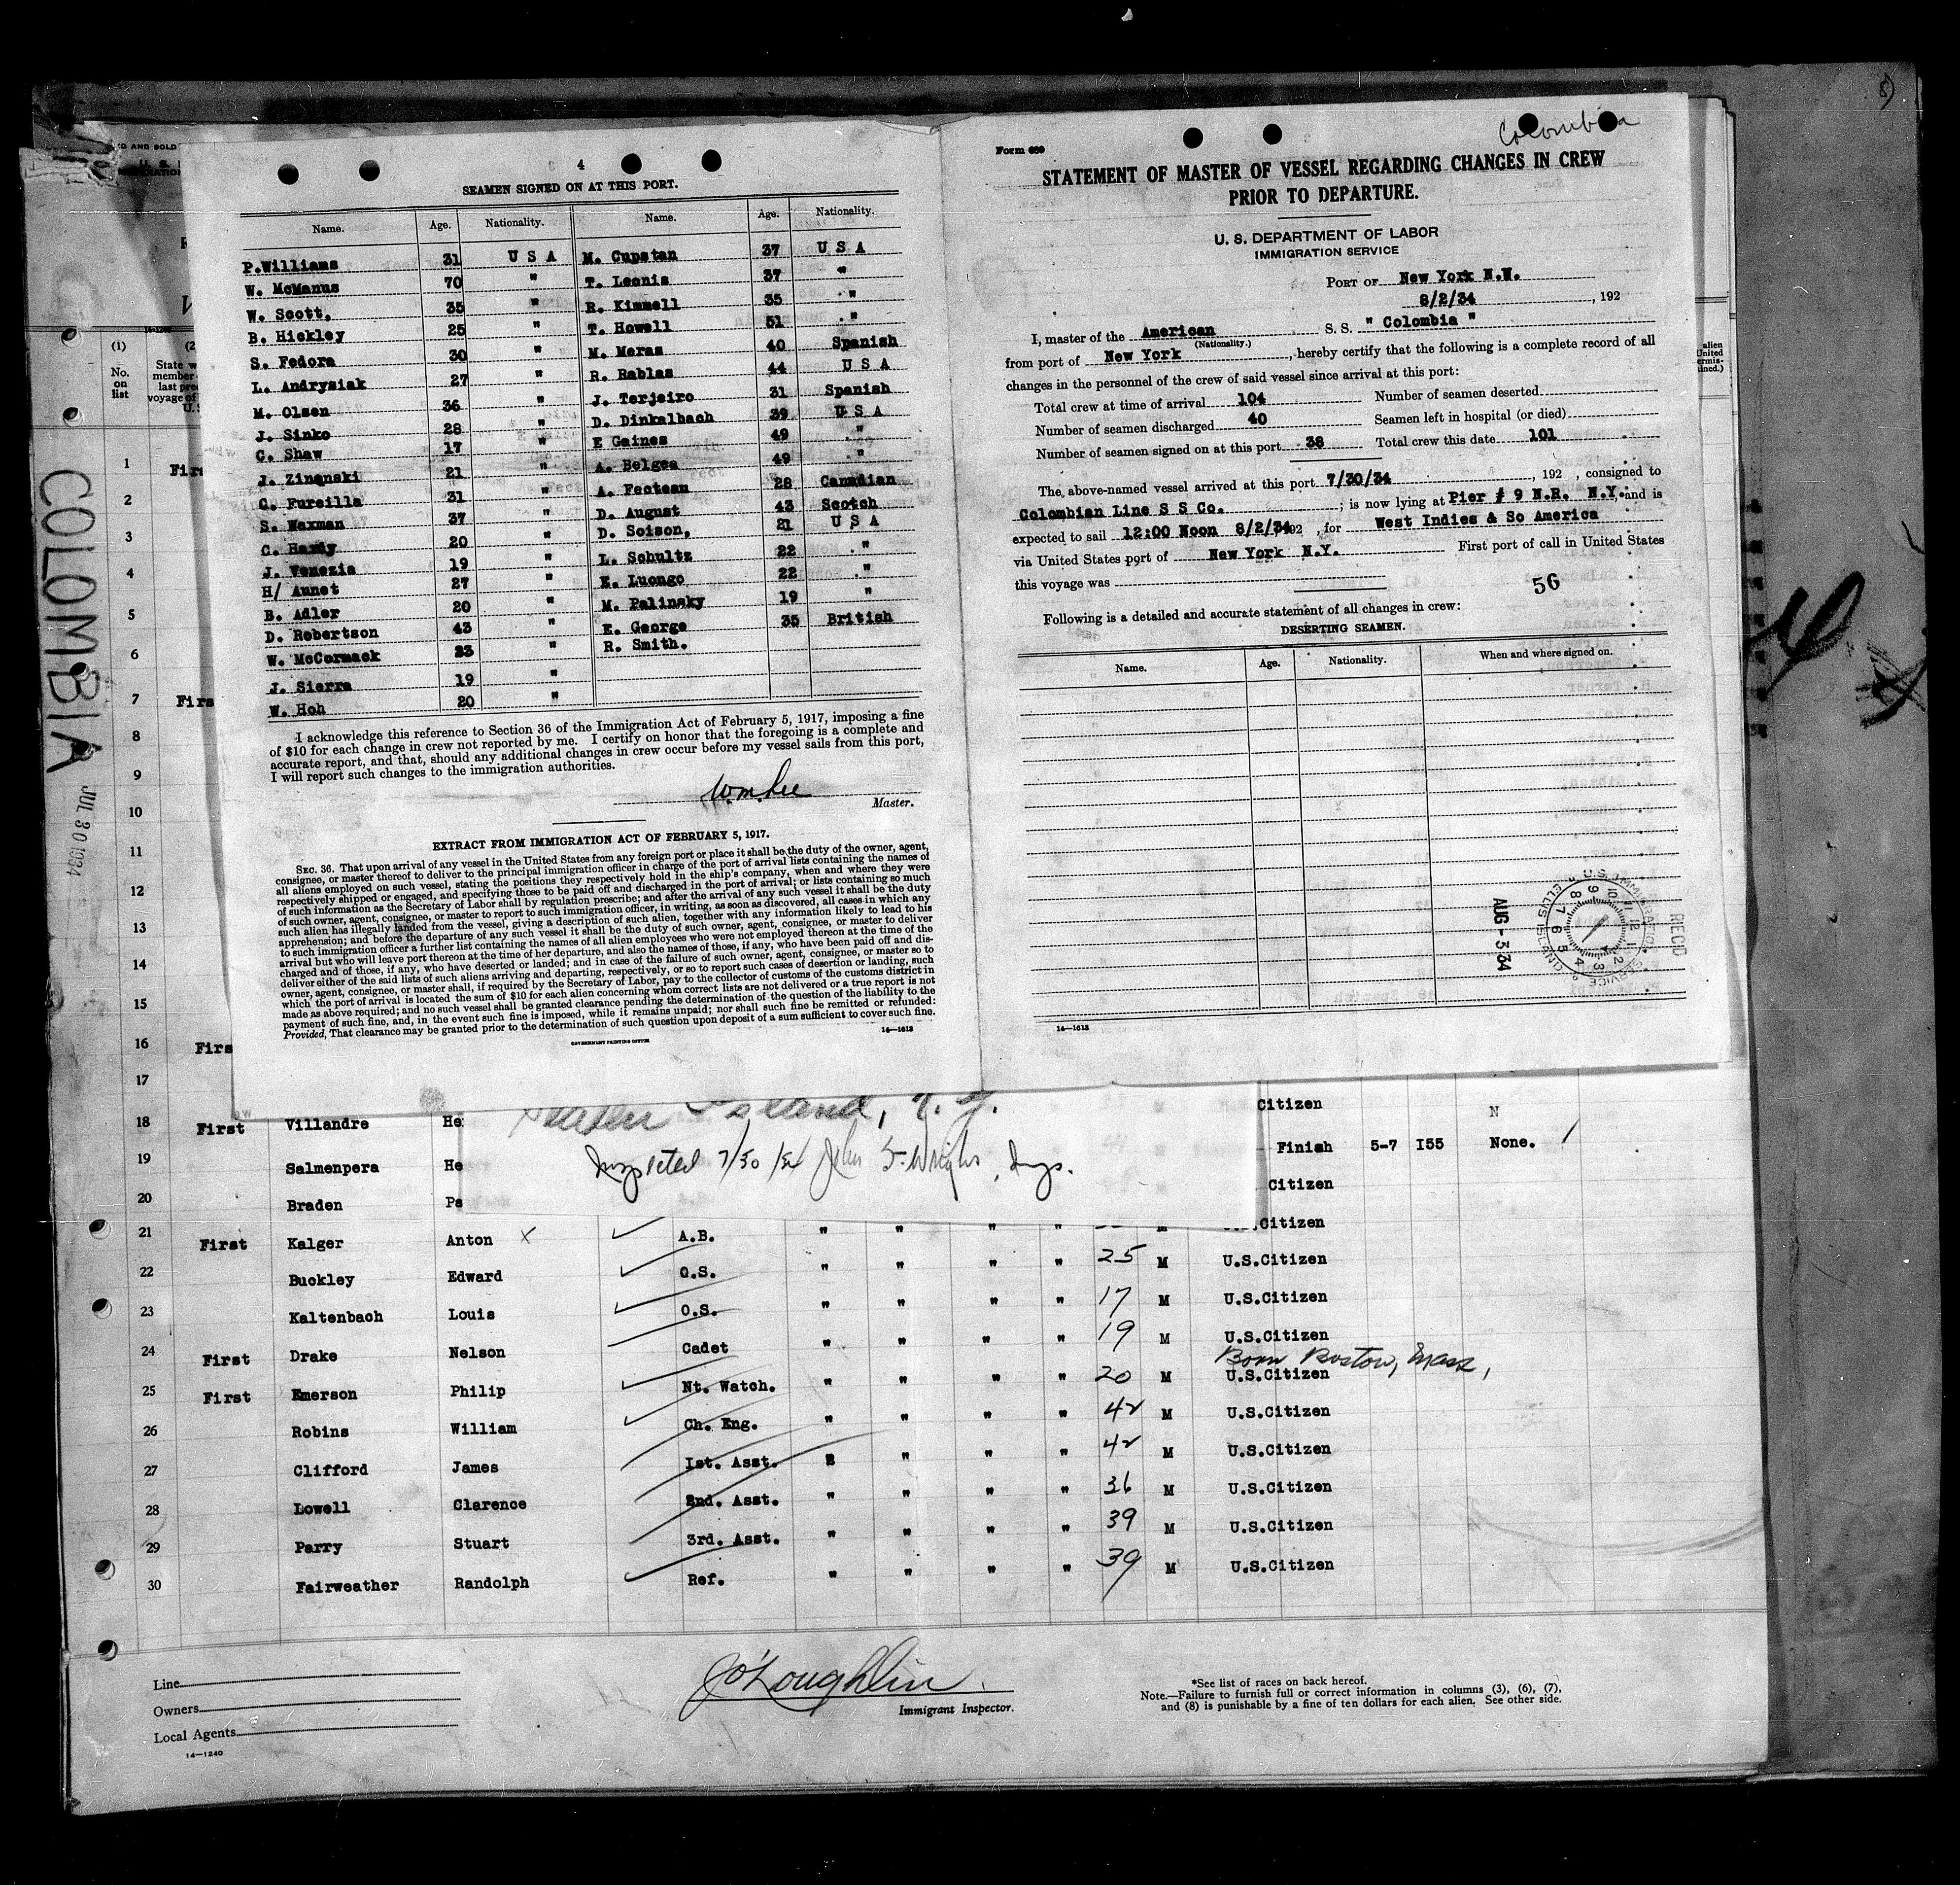 4
SEAMEN SIGNED ON AT THIS PORT.
Name. Age. Nationality. Name. Age. Nationality.
P.Williams 31 U S A M. Cupstan 37 U S A
W. McManus 70 " T. Leonis 37 "
W. Scott. 35 " R. Kimmell 35 "
B. Hickley 25 " T. Howell 51 "
S. Fedora 30 " M. Meras 40 Spanish
L. Andrysiak 27 " R. Rablas 44 U S A
M. Olsen 36 " J. Terjeiro 31 Spanish
J. Sinko 28 " D. Dinkalbach 39 U S A
C. Shaw 17 " E Gaines 49 "
J. Zinanski 21 " A. Belgea 49 "
C. Fureilla 31 " A. Fecteau 28 Canadian
S. Waxman 37 " D. August 43 Scotch
C. Hardy 20 " D. Soison, 21 U S A
J. Venezia 19 " L. Schultz 22 "
H/ Aunet 27 " E. Luongo 22 "
B. Adler 20 " M. Palinsky 19 "
D. Robertson 43 " E. George 35 British
W. McCormack 23 " R. Smith.
J. Sierra 19 "
W. Hoh 20 "
I acknowledge this reference to Section 36 of the Immigration Act of February 5, 1917, imposing a fine
of $10 for each change in crew not reported by me. I certify on honor that the foregoing is a complete and
accurate report, and that, should any additional changes in crew occur before my vessel sails from this port,
I will report such changes to the immigration authorities.
Master.
EXTRACT FROM IMMIGRATION ACT OF FEBRUARY 5, 1917.
SEC. 36. That upon arrival of any vessel in the United States from any foreign port or place it shall be the duty of the owner, agent,
consignee, or master thereof to deliver to the principal immigration officer in charge of the port of arrival lists containing the names of
all aliens employed on such vessel, stating the positions they respectively hold in the ship's company, when and where they were
respectively shipped or engaged, and specifying those to be paid off and discharged in the port of arrival; or lists containing so much
of such information as the Secretary of Labor shall by regulation prescribe; and after the arrival of any such vessel it shall be the duty
of such owner, agent, consignee, or master to report to such immigration officer, in writing, as soon as discovered, all cases in which any
such alien has illegally landed from the vessel, giving a description of such alien, together with any information likely to lead to his
apprehension; and before the departure of any such vessel it shall be the duty of such owner, agent, consignee, or master to deliver
to such immigration officer a further list containing the names of all alien employees who were not employed thereon at the time of the
arrival but who will leave port thereon at the time of her departure, and also the names of those, if any, who have been paid off and dis-
charged and of those, if any, who have deserted or landed; and in case of the failure of such owner, agent, consignee, or master so to
deliver either of the said lists of such aliens arriving and departing, respectively, or so to report such cases of desertion or landing, such
owner, agent, consignee, or master shall, if required by the Secretary of Labor, pay to the collector of customs of the customs district in
which the port of arrival is located the sum of $10 for each alien concerning whom correct lists are not delivered or a true report is not
made as above required; and no such vessel shall be granted clearance pending the determination of the question of the liability to the
payment of such fine, and, in the event such fine is imposed, while it remains unpaid; nor shall such fine be remitted or refunded:
Provided, That clearance may be granted prior to the determination of such question upon deposit of a sum sufficient to cover such fine.
14—1613
GOVERNMENT PRINTING OFFICE
Colombia
Form 689
STATEMENT OF MASTER OF VESSEL REGARDING CHANGES IN CREW
PRIOR TO DEPARTURE.
U. S. DEPARTMENT OF LABOR
IMMIGRATION SERVICE
PORT OF New York N.Y.
8/2/34, 192
I, master of the American S. S. " Colombia "
(Nationality.)
from port of New York, hereby certify that the following is a complete record of all
changes in the personnel of the crew of said vessel since arrival at this port:
Total crew at time of arrival 104 Number of seamen deserted
Number of seamen discharged 40 Seamen left in hospital (or died)
Number of seamen signed on at this port 38 Total crew this date 101
The above-named vessel arrived at this port 7/30/34, 192 , consigned to
Colombian Line S S Co. ; is now lying at Pier # 9 N.R. N.Y. and is
expected to sail 12:00 Noon 8/2/34 192 , for West Indies & So America
via United States port of New York N.Y. First port of call in United States
this voyage was
56
Following is a detailed and accurate statement of all changes in crew:
DESERTING SEAMEN.
Name. Age. Nationality. When and where signed on.
14—1613
RECD
AUG -3 34
U.S. IMMIGRATION SERVICE
ELLIS ISLAND
COLOMBIA
JUL 30 1934
(1)
No.
on
list
1 First
2
3
4
5
6
7 First
8
9
10
11
12
13
14
15
16 First
17
Citizen
Staten Island, N.Y.
Inspected 7/30/34 John S. Wright, Insp.
18 First Villandre He Finish 5-7 155 None.
19 Salmenpera He Citizen
20 Braden Pa Citizen
21 First Kalger Anton X A.B. " " " " M U.S.Citizen
22 Buckley Edward O.S. " " " " 25 M U.S.Citizen
23 Kaltenbach Louis O.S. " " " " 17 M U.S.Citizen
24 First Drake Nelson Cadet " " " " 19 M U.S.Citizen
Born Boston, Mass,
25 First Emerson Philip Nt. Watch. " " " " 20 M U.S.Citizen
26 Robins William Ch. Eng. " " " " 42 M U.S.Citizen
27 Clifford James 1st. Asst. " " " " 42 M U.S.Citizen
28 Lowell Clarence 2nd. Asst. " " " " 36 M U.S.Citizen
29 Parry Stuart 3rd. Asst. " " " " 39 M U.S.Citizen
30 Fairweather Randolph Ref. " " " " 39 M U.S.Citizen
Line
Owners
Local Agents
14—1240
J O'Loughlin
Immigrant Inspector.
*See list of races on back hereof.
Note.—Failure to furnish full or correct information in columns (3), (6), (7),
and (8) is punishable by a fine of ten dollars for each alien. See other side.